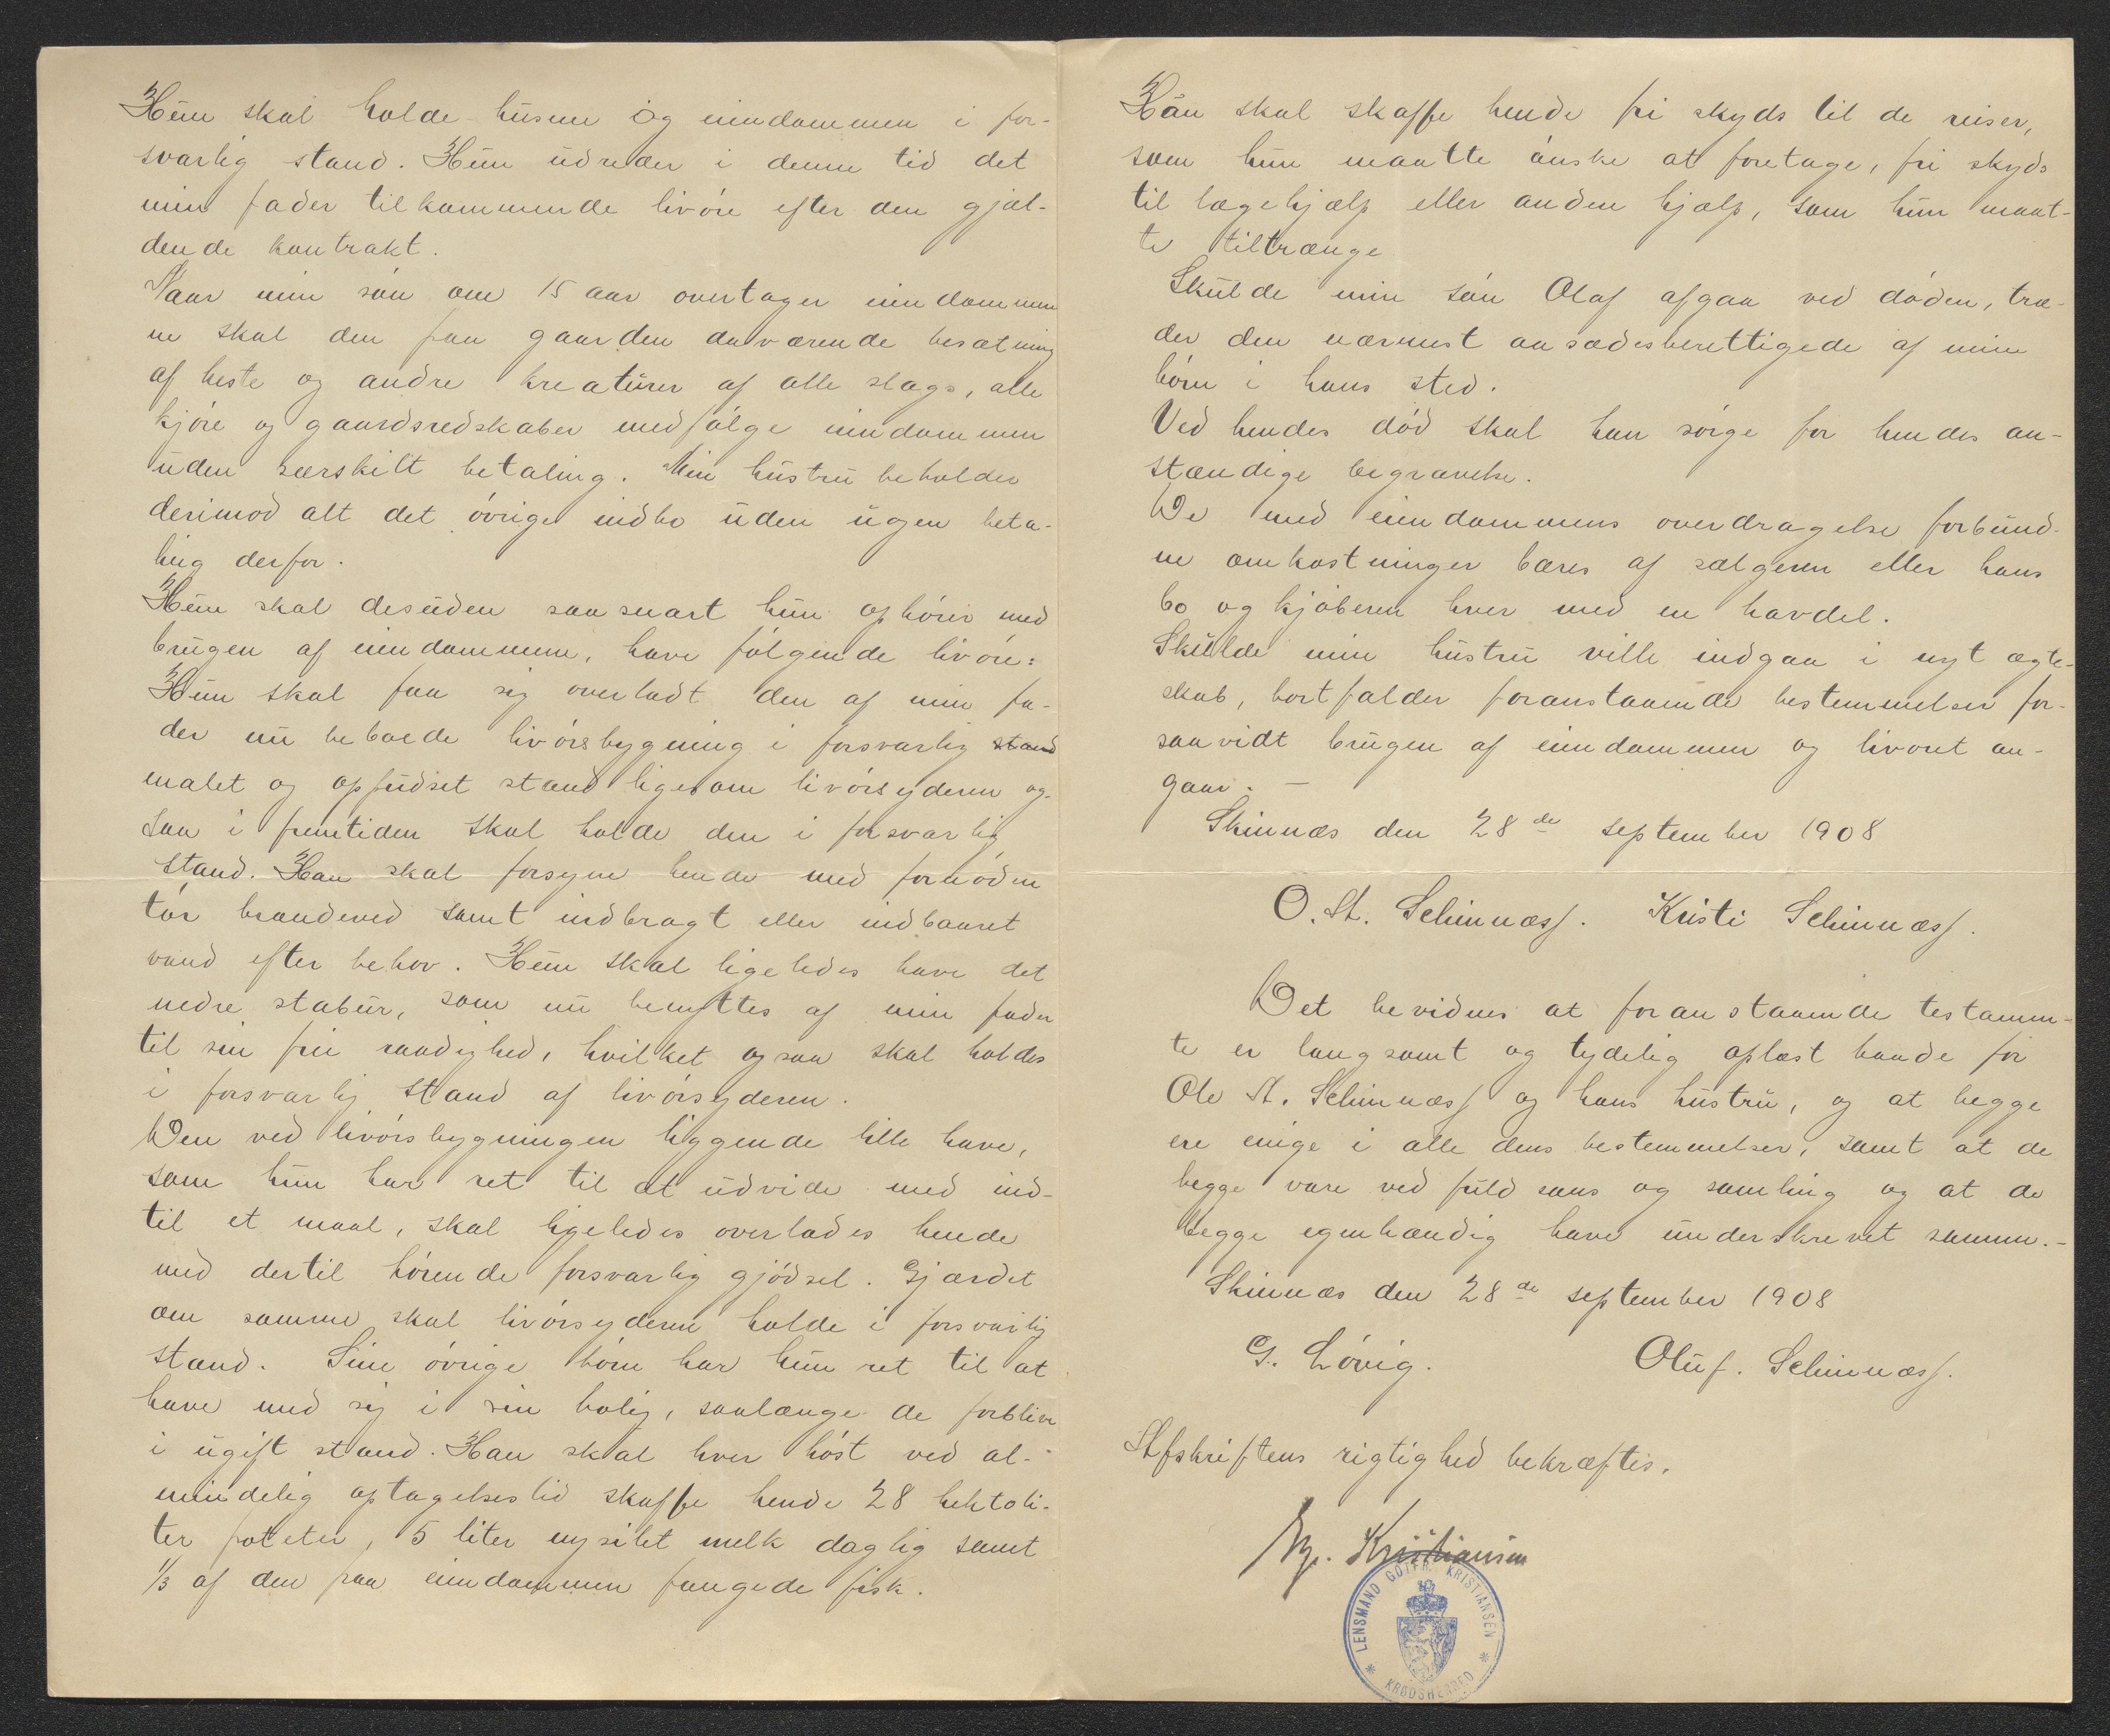 Hun skal holde husene og eiendommen i for-
svarlig stand. Hun udreder i denne tid det
min fader tilkommende livöre efter den gjæl-
dende kontrakt.
Naar min sön om 15 aar overtager eiendommen
ne skal den paa gaarden daværende besætning
af heste og andre kreaturer af alle slags, alle
kjöre og gaardsredskaber medfölge eiendommen
uden særskilt betaling. Min hustru beholder
derimod alt det övrige indbo uden ugen beta-
ling derfor.
Hun skal desuden saasnart hun ophörer med
brugen af eiendommen, have fölgende livöre:
Hun skal faa sig overladt den af min fa-
der nu beboede livörsbygning i forsvarlig stand
malet og oppudset stand ligesom livörsyderen og-
saa i fremtiden skal holde den i forsvarlig
stand. Han skal forsyne hende med fornöden
tör brændeved samt indbragt eller indbaaret
vand efter behov. Hun skal ligeledes have det
nedre stabur, som nu benyttes af min fader
til sin frie raadighed, hvilket ogsaa skal holdes
i forsvarlig stand af livörsyderen.
Den ved livörsbygningen liggende lille have,
som hun har ret til at udvide med ind-
til et maal, skal ligeledes overlades hende
med dertil hörende forsvarlig gjödsel. Gjærdet
om samme skal livörsyderen holde i forsvarlig
stand. Sine övrige börn har hun ret til at
have med sig i sin bolig, saalænge de forblive
i ugift stand. Han skal hver höst ved al-
mindelig optagelsestid skaffe hende 28 hektoli-
ter poteter, 5 liter nysilet melk daglig samt
1/3 af den paa eiendommen fangede fisk.
Han skal skaffe hende fri skyds til de reiser,
som hun maatte önske at foretage, fri skyds
til lægehjælp eller anden hjælp, som hun maat-
te tiltrænge
Skulde min sön Olaf afgaa ved döden, træ-
der den nærmest aasædesberettigede af mine
börn i hans sted.
Ved hendes död skal han sörge for hendes an-
stændige begravelse.
De med eiendommens overdragelse forbund-
ne omkostninger bæres af sælgeren eller hans
bo og kjöberen hver med en havdel.
Skulde min hustru ville indgaa i nyt ægte-
skab, bortfalder foranstaaende bestemmelser for-
saavidt brugen af eiendommen og livöret an-
gaar. —
Skinnæs den 28de september 1908
O. A. Schinnæss. Kristi Schinnæss.
Det bevidnes at foranstaaende testamen-
te er langsomt og tydelig oplæst baade for
Ole A. Schinnæss og hans hustru, og at begge
ere enige i alle dens bestemmelser, samt at de
begge vare ved fuld sans og samling og at de
begge egenhændig have underskrevet samme.-
Skinnæs den 28de september 1908
G. Lövig. Oluf. Schinnæss.
Afskriftens rigtighed bekræftes.
Kristiansen
LENSMAND GOTFR. KRISTIANSEN
KRØDSHERRED